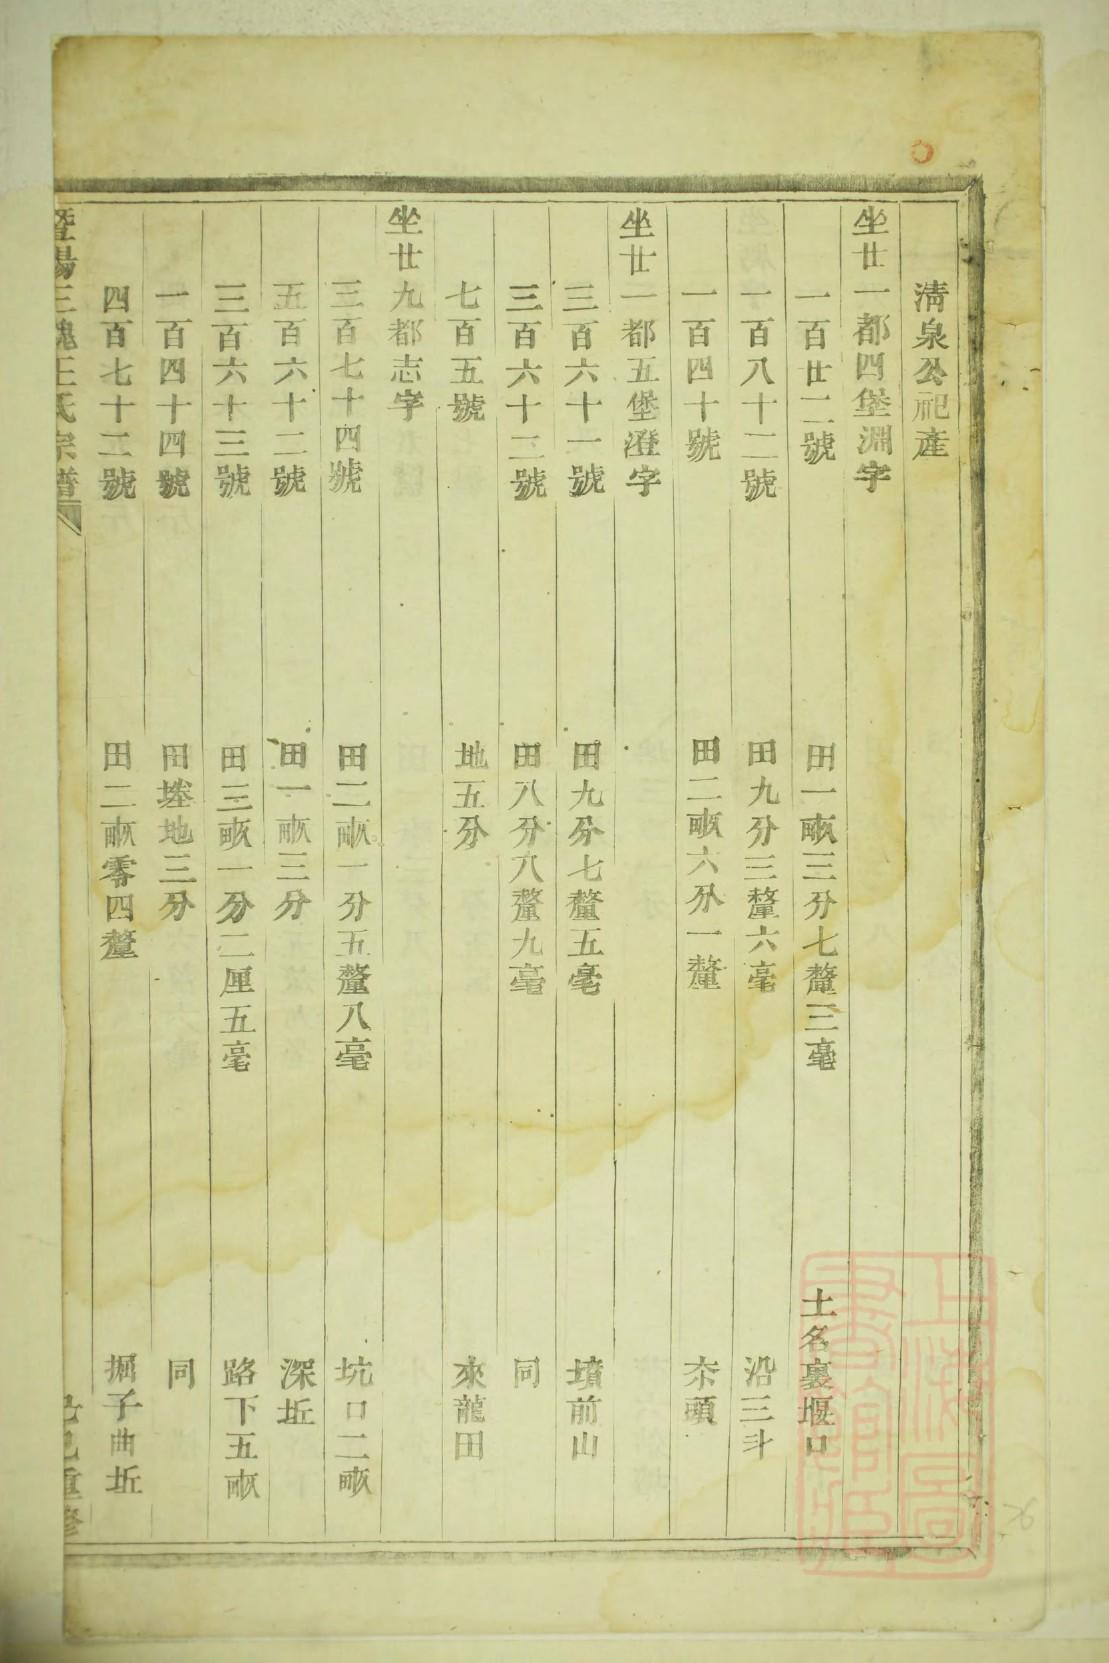 清泉公祀產
坐廿一都四堡淵字
一百廿二號 田一畝三分七釐三毫 土名裏堰口
一百八十二號 田九分三釐六毫 沿三斗
一百四十號 田二畝六分一釐 夰頭
坐廿一都五堡澄字
三百六十一號 田九分七釐五毫 墳前山
三百六十二號 田八分八釐九毫 同
七百五號 地五分 來龍田
坐廿九都志字
三百七十四號 田二畝一分五釐八毫 坑口二畝
五百六十二號 田一畝三分 深坵
三百六十三號 田三畝一分二厘五毫 路下五畝
一百四十四號 田塂地三分 同
四百七十二號 田二畝零四釐 掘子曲坵
暨陽三槐王氏宗譜 己重修
上海圖書館藏